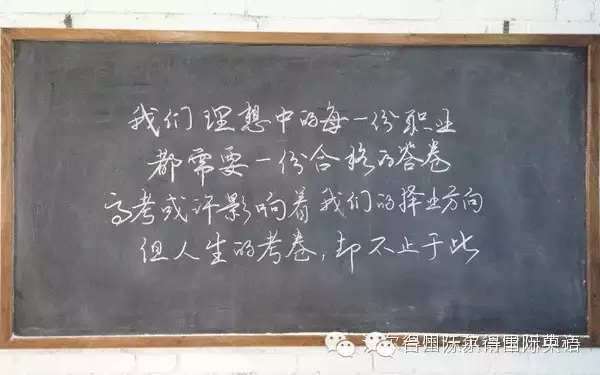 我们理想中的每一份职业
都需要一份合格的答卷
高考或许影响着我们的择业方向
但人生的考卷，却不止于此